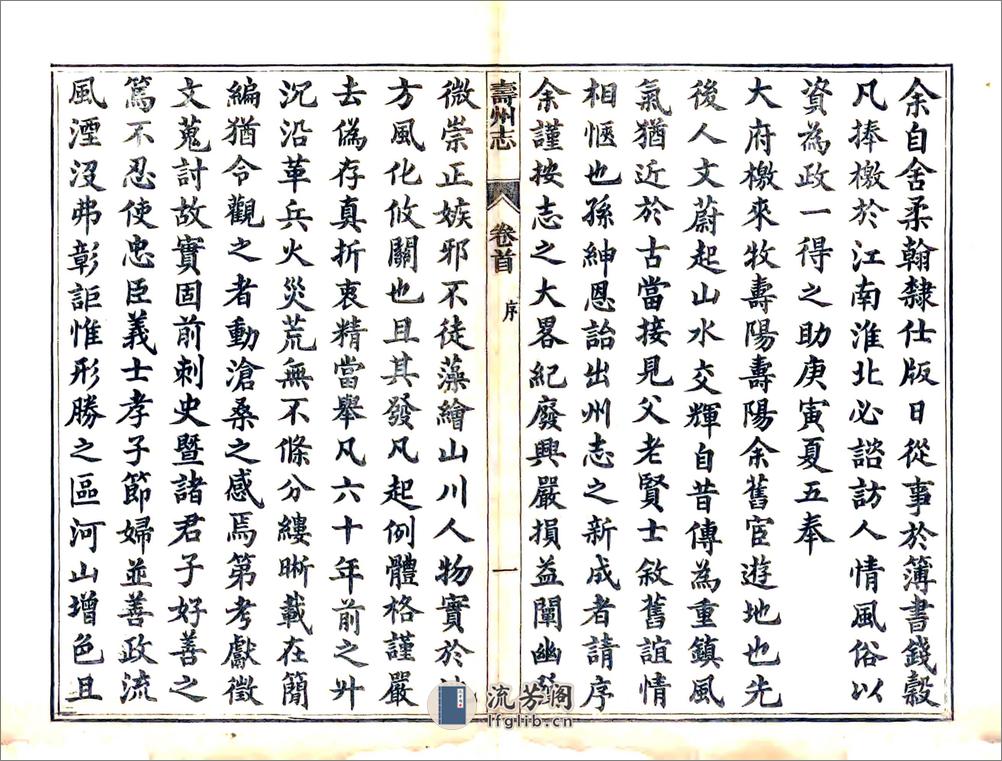 余自舍柔翰隸仕版日從事於簿書錢穀
凡捧檄於江南淮北必諮訪人情風俗以
資為政一得之助庚寅夏五奉
大府檄來牧壽陽壽陽余舊宦遊地也先
後人文蔚起山水交輝自昔傳為重鎮風
氣猶近於古當接見父老賢士敘舊誼情
相愜也孫紳恩詒出州志之新成者請序
余謹按志之大畧紀廢興嚴損益闡幽
壽州志 卷首 序 一
微崇正嫉邪不徒藻繪山川人物實於
方風化攸關也且其發凡起例體格謹嚴
去偽存真折衷精當舉凡六十年前之升
沉沿革兵火災荒無不條分縷晰載在簡
編猶令觀之者動滄桑之感焉第考獻徵
文蒐討故實固前刺史暨諸君子好善之
篤不忍使忠臣義士孝子節婦並善政流
風湮沒弗彰詎惟形勝之區河山增色且
流芳閣
lfglib.cn